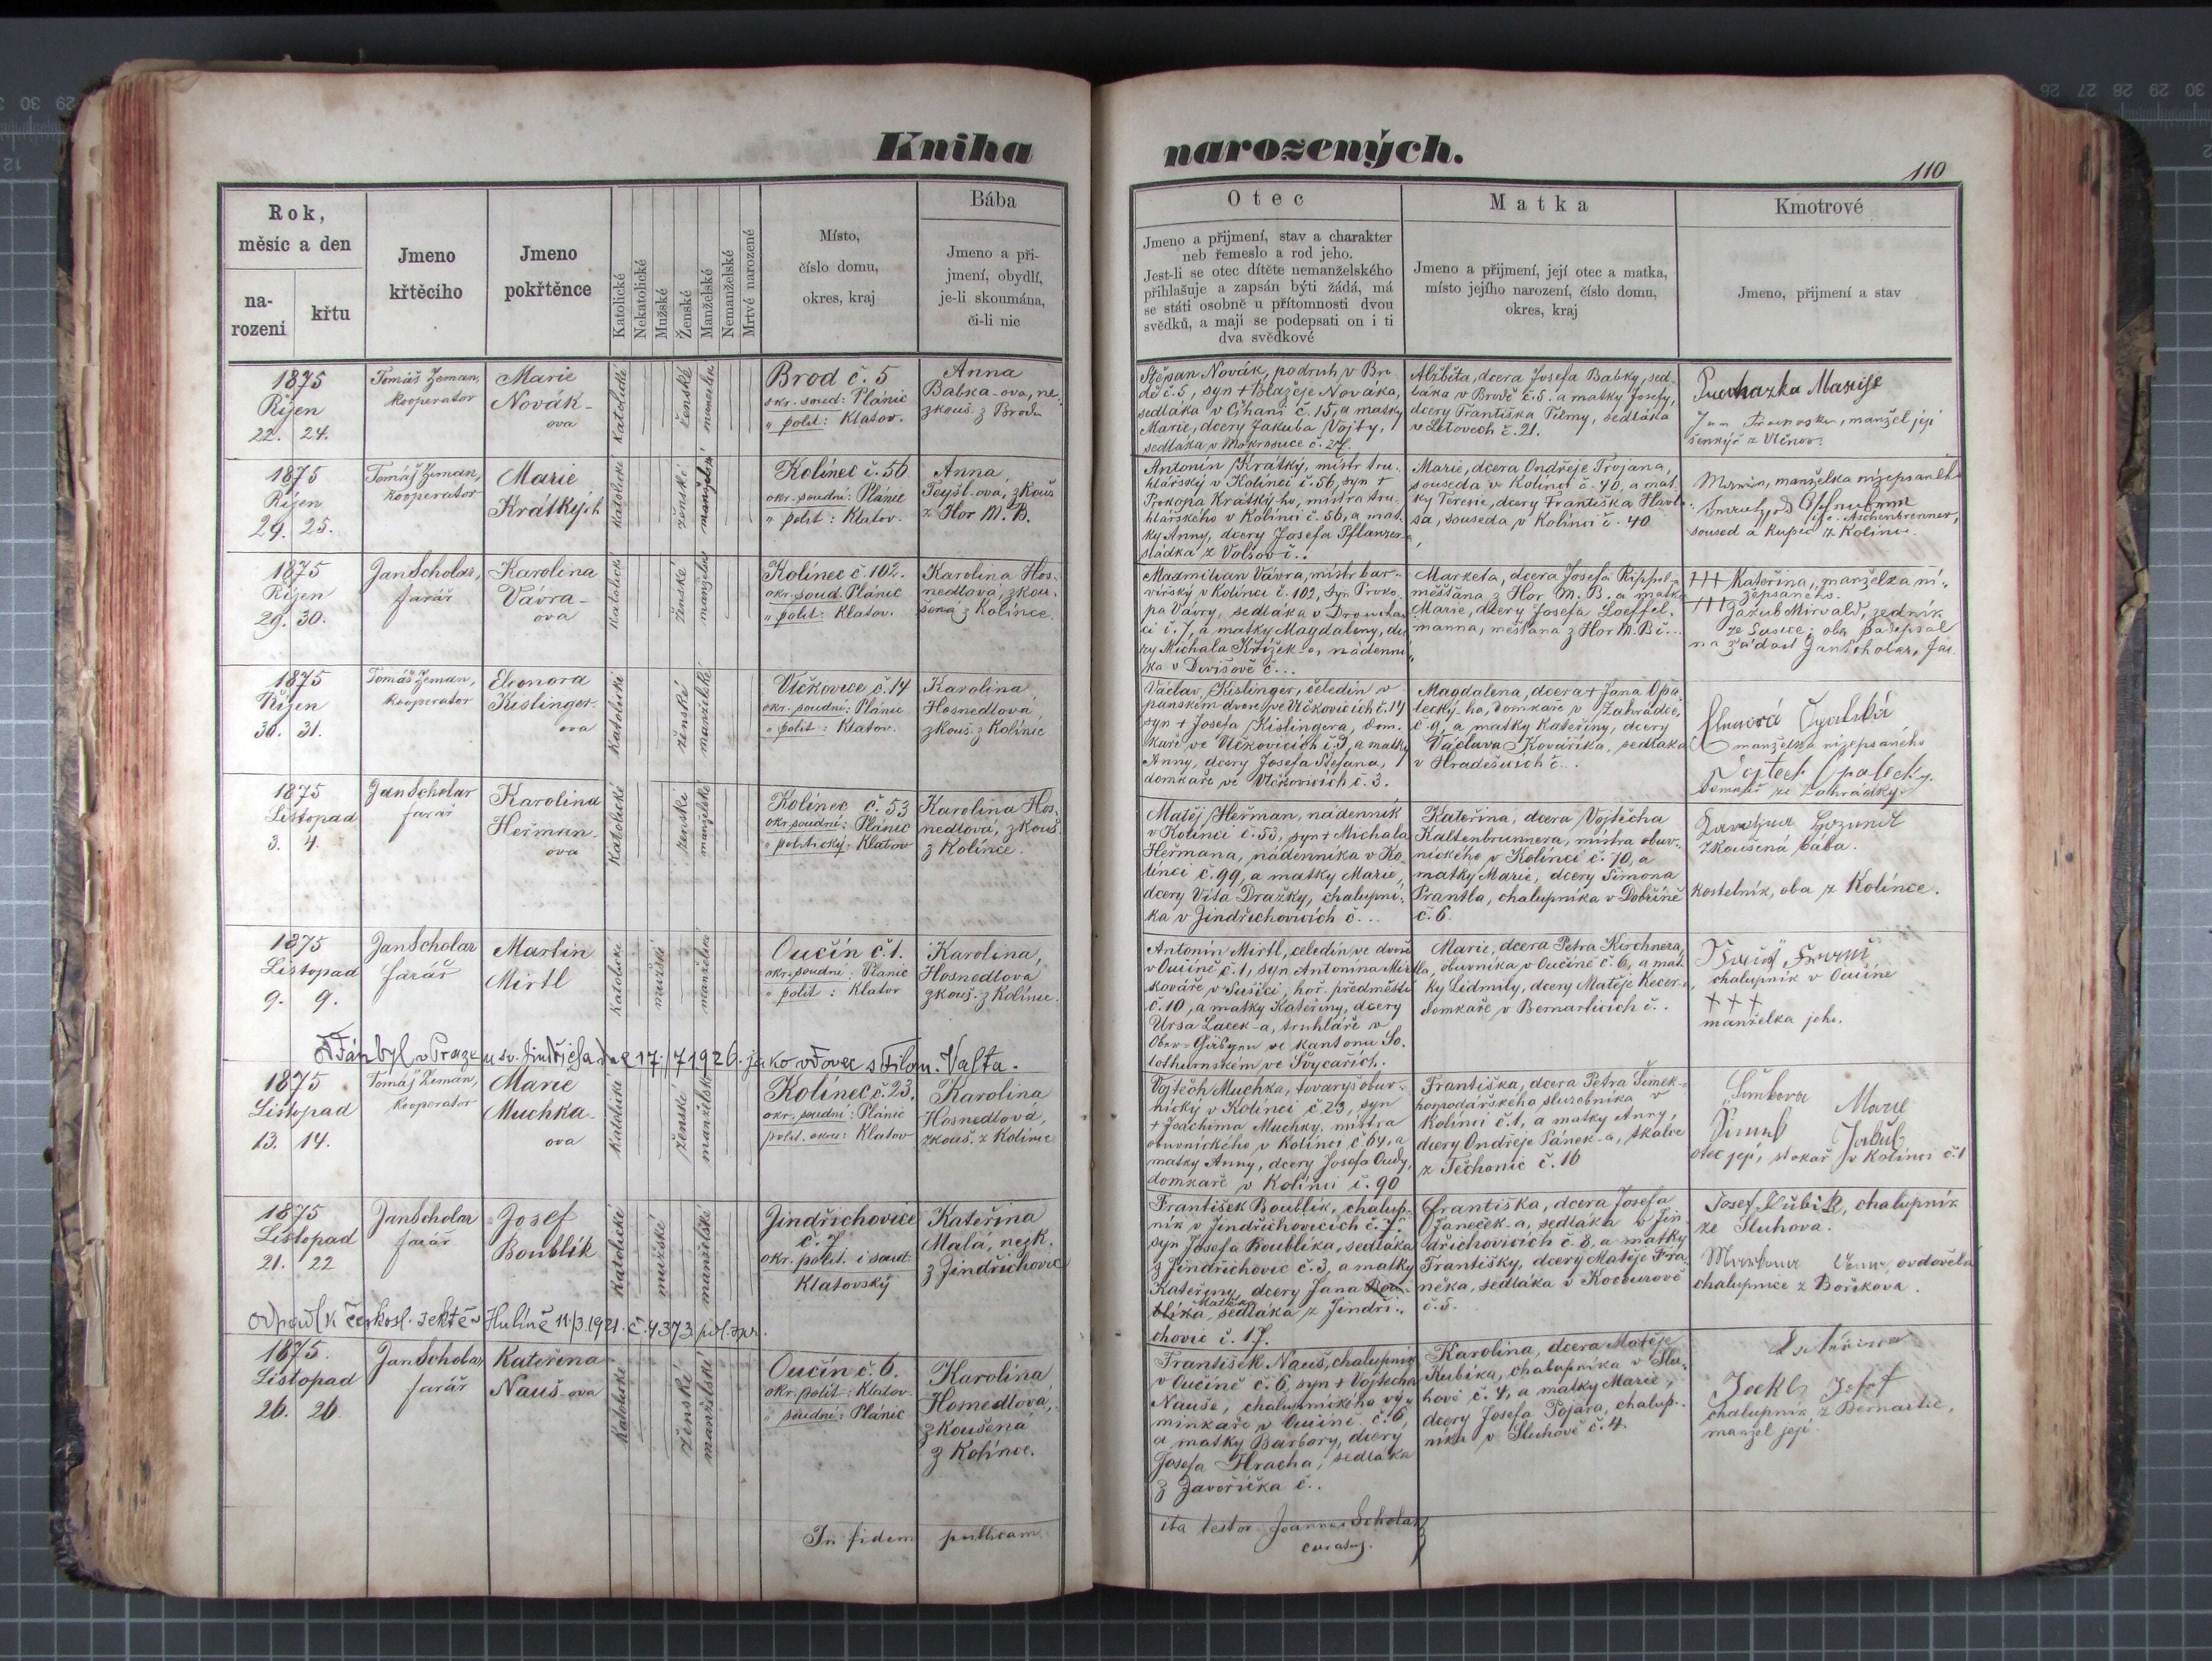 Kniha narozených.
110
Rok,
měsíc a den
na-
rození
křtu
Jmeno
křtěcího
Jmeno
pokřtěnce
Katolické
Nekatolické
Mužské
Ženské
Manželské
Nemanželské
Mrtvé narozené
Místo,
číslo domu,
okres, kraj
Bába
Jmeno a při-
jmení, obydlí,
je-li skoumána,
či-li nic
Otec
Jmeno a přijmení, stav a charakter
neb řemeslo a rod jeho.
Jest-li se otec dítěte nemanželského
přihlašuje a zapsán býti žádá, má
se státi osobně u přítomnosti dvou
svědků, a mají se podepsati on i ti
dva svědkové
Matka
Jmeno a přijmení, její otec a matka,
místo jejího narození, číslo domu,
okres, kraj
Kmotrové
Jmeno, přijmení a stav
1875
Říjen
22. 24.
Tomáš Zeman,
kooperator
Marie
Novák-
ova
katolické
ženské
manželské
Brod č. 5
okr. soud: Plánic
" polit: Klatov.
Anna
Babka-ova, ne
zkouš. z Brodu
Štěpan Novák, podruh v Bro
dě č. 5, syn + Blažeje Nováka,
sedláka v Číhani č. 15, a matky
Marie, dcery Jakuba Vojty,
sedláka v Mokrosuce č. 27.
Alžbita, dcera Josefa Babky, sed-
láka v Brodě č. 5. a matky Josefy,
dcery Františka Tůmy, sedláka
v Letovech č. 21.
Puchazka Marije
Jan, manžel její
šenkýř z Vlčnov.
1875
Říjen
29. 25.
Tomáš Zeman,
kooperator
Marie
Krátkých
katolické
ženské
manželské
Kolínec č. 56
okr. soudní: Plánic
" polit: Klatov.
Anna
Feyśl-ova, zkouš
z Hor M. B.
Antonín Krátký, mistr tru-
hlářský v Kolínci č. 56, syn +
Prokopa Krátký-ho, mistra tru-
hlářského v Kolínci č. 56, a mat-
ky Anny, dcery Josefa Pflanzera,
sládka z Volšov č..
Marie, dcera Ondřeje Trojana,
souseda v Kolínci č. 40, a mat-
ky Terezie, dcery Františka Havl-
sa, souseda v Kolínci č. 40
manželka nížepsaného
Aschenbrenner,
soused a kupec z Kolince.
1875
Říjen
29. 30.
Jan Scholar,
farář
Karolina
Vávra-
ova
katolické
ženské
manželské
Kolínec č. 102.
okr. soud. Plánic
" polit: Klatov.
Karolina Hos-
nedlova, zkou-
šená z Kolínce
Maxmilian Vávra, mistr bar-
vířský v Kolínci č. 102, syn Proko-
pa Vávry, sedláka v
č. 7, a matky Magdaleny, dce
ry Michala Křížek-a, nádenní
ka v Divišově č...
Marketa, dcera Josefa Rippel-a
měšťana z Hor M. B. a matky
Marie, dcery Josefa Loeffel-
manna, měšťana z Hor M. B č...
+++ Kateřina, manželka ní-
žepsaného.
+++ Jakub Mirvald, zedník
ze Sušice; oba podepsal
na žádost Jan Scholar, far.
1875
Říjen
30. 31.
Tomáš Zeman,
kooperator
Eleonora
Kislinger-
ova
katolické
ženské
manželské
Vlčkovice č. 14
okr. soudní: Plánic
" polit: Klatov.
Karolina
Hosnedlová
zkouš. z Kolínic
Václav Kislinger, čeledín v
panském dvoře ve Vlčkovicích č. 14
syn + Josefa Kislingera, dom-
káře ve Vlčkovicích č. 3, a matky
Anny, dcery Josefa Štefana,
domkaře ve Vlčkovicích č. 3.
Magdalena, dcera + Jana Opa-
lecký-ho, domkaře v Zahrádce,
č. 9, a matky Kateřiny, dcery
Václava Kovaříka, sedláka
v Hradešicích č...
manželka nížepsaného
Vojtech Opalecky.
Domkař ze Zahrádky.
1875
Listopad
3. 4.
Jan Scholar
farář
Karolina
Heřman-
ova
katolické
ženské
manželské
Kolínec č. 53
okr. soudní: Plánic
" politický: Klatov
Karolina Hos-
nedlová, zkouš.
z Kolínce.
Matěj Heřman, nádenník
v Kolínci č. 53, syn + Michala
Heřmana, nádenníka v Ko-
línci č. 99, a matky Marie,
dcery Víta Dražky, chalupní-
ka v Jindřichovicích č...
Kateřina, dcera Vojtěcha
Kaltenbrunnera, mistra obuv-
nického v Kolínci č. 70, a
matky Marie, dcery Šimona
Prantla, chalupníka v Dobříně
č. 6.
zkoušená bába.
kostelník, oba z Kolínce.
1875
Listopad
9. 9.
Jan Scholar
farář
Martin
Mirtl
katolické
mužské
manželské
Oučín č. 1.
okr. soudní: Plánic
" polit: Klatov
Karolina,
Hosnedlová
zkouš. z Kolince.
Antonín Mirtl, čeledín ve dvoře
v Oučíně č. 1, syn Antonína Mirtla,
kováře v Sušici, hoř. předměstí
č. 10, a matky Kateřiny, dcery
Ursa Lacek-a, truhláře v
Ober-Gösgen ve kantonu So-
lothurnském ve Švýcařích.
Marie, dcera Petra Kirchnera,
obuvníka v Oučíně č. 6, a mat-
ky Lidmily, dcery Matěje Kecer-a,
domkaře v Bernarticích č..
chalupník v Oučíně
+++
manželka jeho.
Oddán byl v Praze u sv. Jindřicha dne 17./7 1926. jako vdovec s Filom. Vašta.
1875
Listopad
13. 14.
Tomáš Zeman,
kooperator
Marie
Muchka-
ova
katolické
ženské
manželské
Kolínec č. 23.
okr. soudní: Plánic
polit. okres: Klatov
Karolina
Hosnedlová,
zkouš. z Kolince
Vojtěch Muchka, tovaryš obuv-
nický v Kolínci č. 23, syn
+ Joachima Muchky, mistra
obuvnického v Kolínci č. 64, a
matky Anny, dcery Josefa Oudy,
domkaře v Kolínci č. 90
Františka, dcera Petra Šimek-a
hospodářského služebníka v
Kolínci č. 1, a matky Anny,
dcery Ondřeje Pánek-a, skaláře
z Těchonic č. 16
Marie
Jakub
otec její, v Kolínci č. 1
1875
Listopad
21. 22
Jan Scholar
farář
Josef
Boublík
katolické
mužské
manželské
Jindřichovice
č. 7
okr. polit. i soud.
Klatovský
Kateřina
Malá, nezk.
z Jindřichovic
František Boublík, chalup-
ník v Jindřichovicích č. 7.
syn Josefa Boublíka, sedláka
z Jindřichovic č. 3, a matky
Kateřyny, dcery Jana Bou-
blíka, sedláka z Jindři-
chovic č. 17.
Františka, dcera Josefa
Janeček-a, sedláka v Jin-
dřichovicích č. 8, a matky
Františky, dcery Matěje Fra-
něka, sedláka v Kocourově
č. 5.
Josef Kubik, chalupník
ze Sluhova.
ovdovělá
chalupnice z Boříkova.
Odpadl k českosl. sektě v Hulíně 11/3.1921. č. 4373 pol. spr.
1875.
Listopad
26. 26.
Jan Scholar
farář
Kateřina
Nauš-ova
katolické
ženské
manželské
Oučín č. 6.
okr. polit: Klatov.
" soudní: Plánic
Karolina
Hosnedlová,
zkoušená
z Kolínce.
František Nauš, chalupník
v Oučíně č. 6, syn + Vojtěcha
Nauše, chalupnického vý-
minkaře v Oučíně č. 6,
a matky Barbory, dcery
Josefa Hracha, sedláka
z Zavoříčka č..
Karolina, dcera Matěje
Kubíka, chalupníka v Slu-
hově č. 4, a matky Marie,
dcery Josefa Pojara, chalup-
níka v Sluhově č. 4.
Josef
chalupník z Bernartic,
manžel její.
In fidem publicam
ita testor Joannes Scholar
curatus.